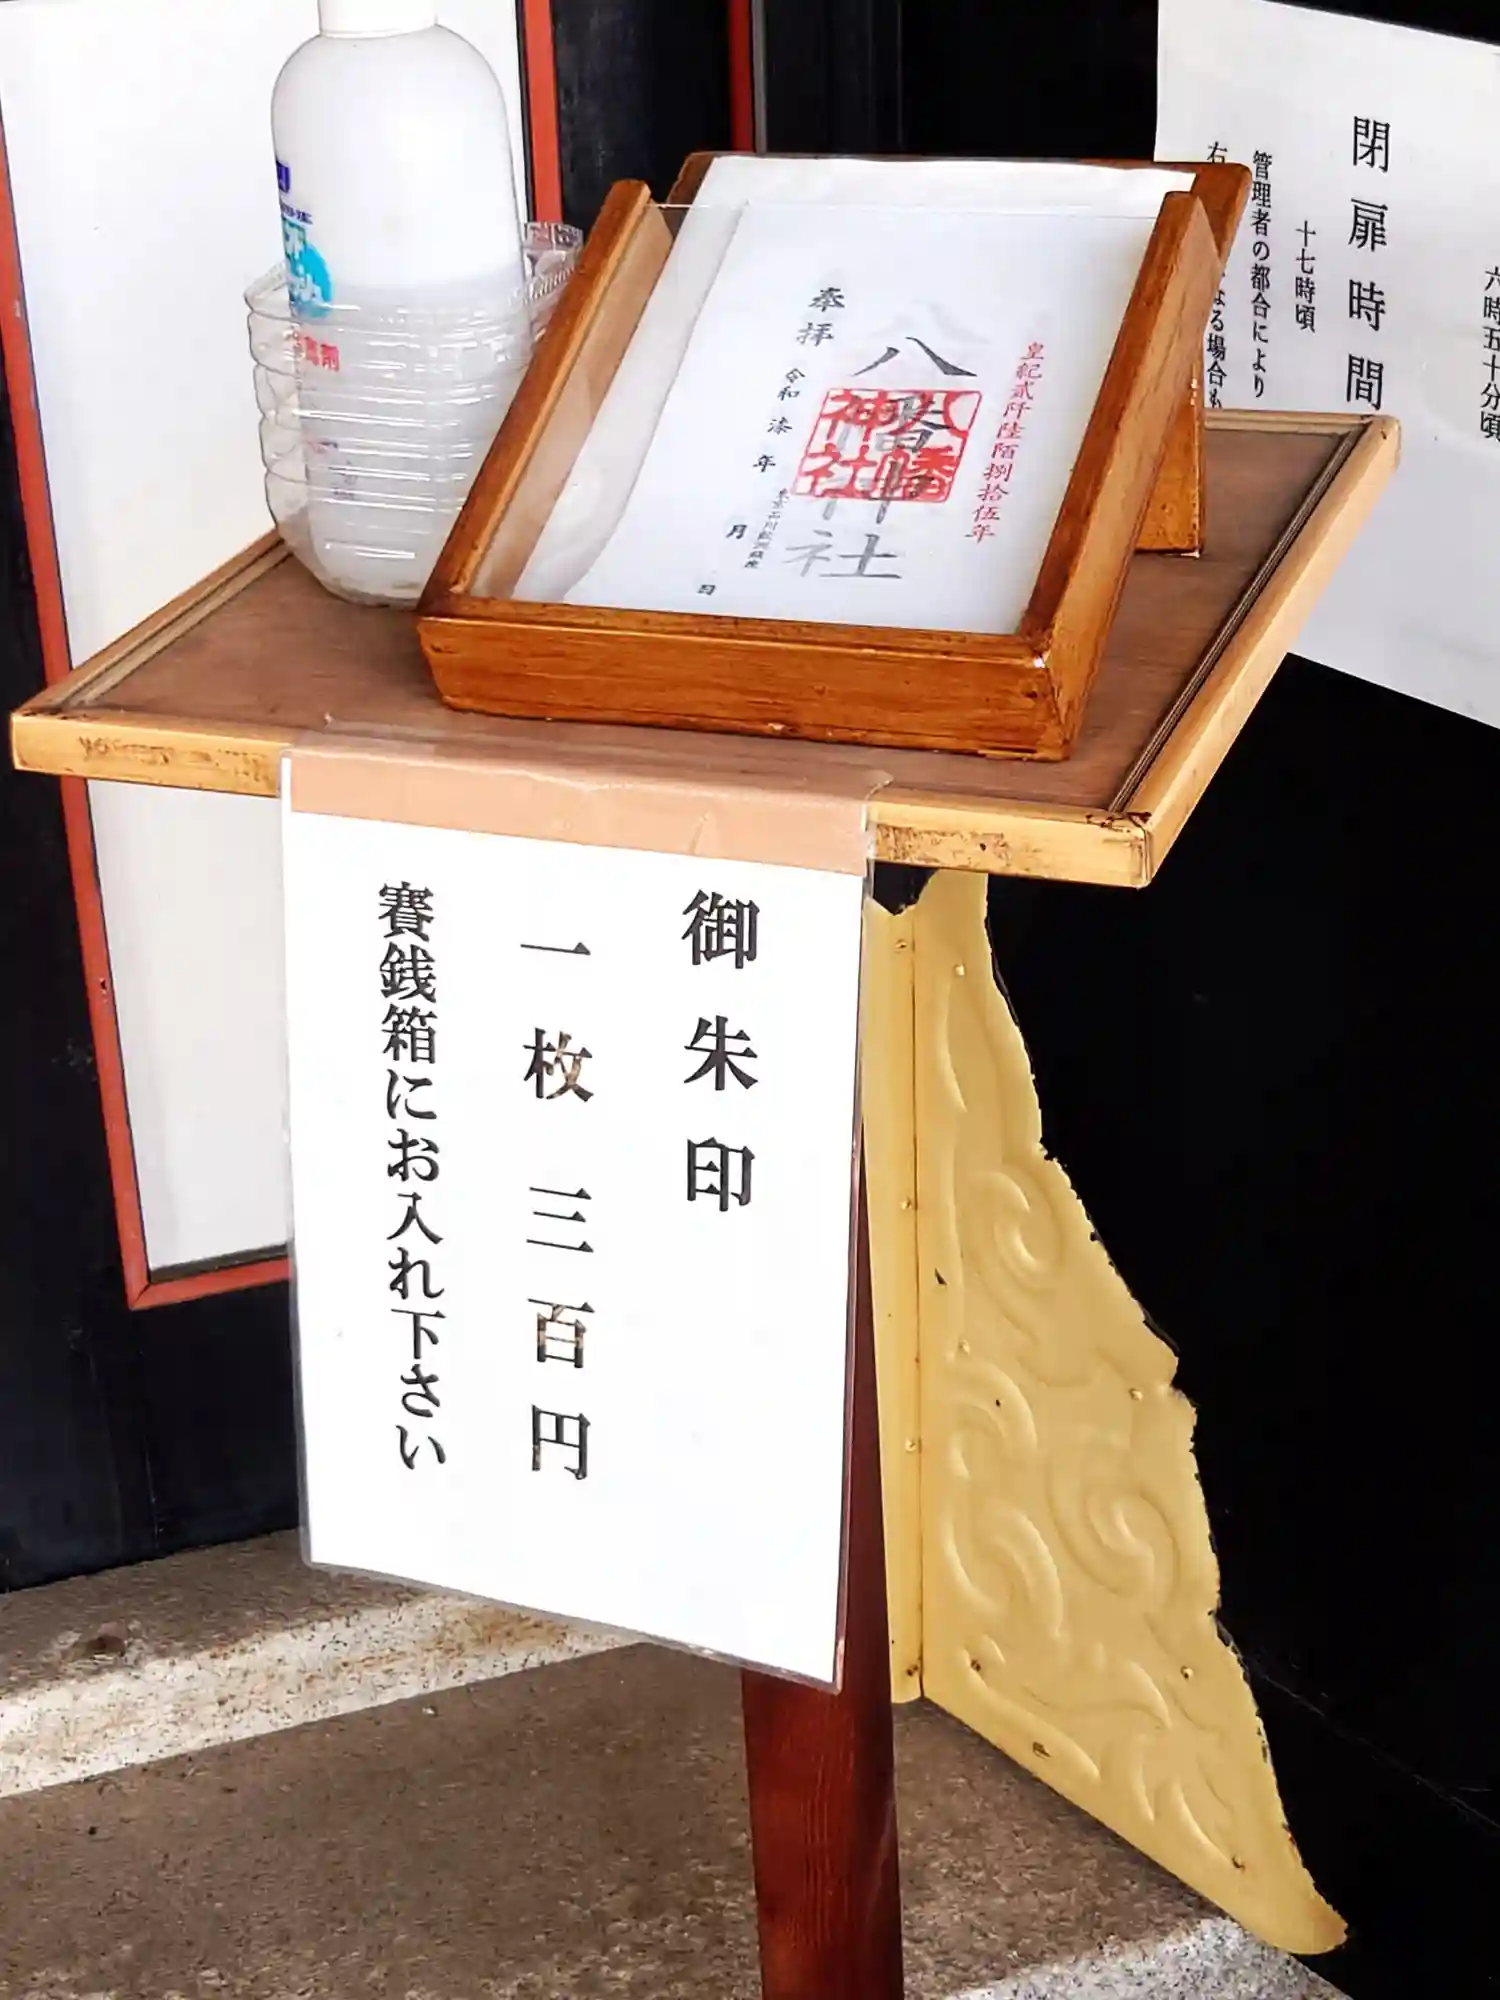 閉扉時間
十七時頃
管理者の都合により
六時五十分頃
皇紀貳阡陸陌捌拾伍年
八幡神社
八幡
神社
奉拝
令和漆年 月 日
御朱印
一枚 三百円
賽銭箱にお入れ下さい